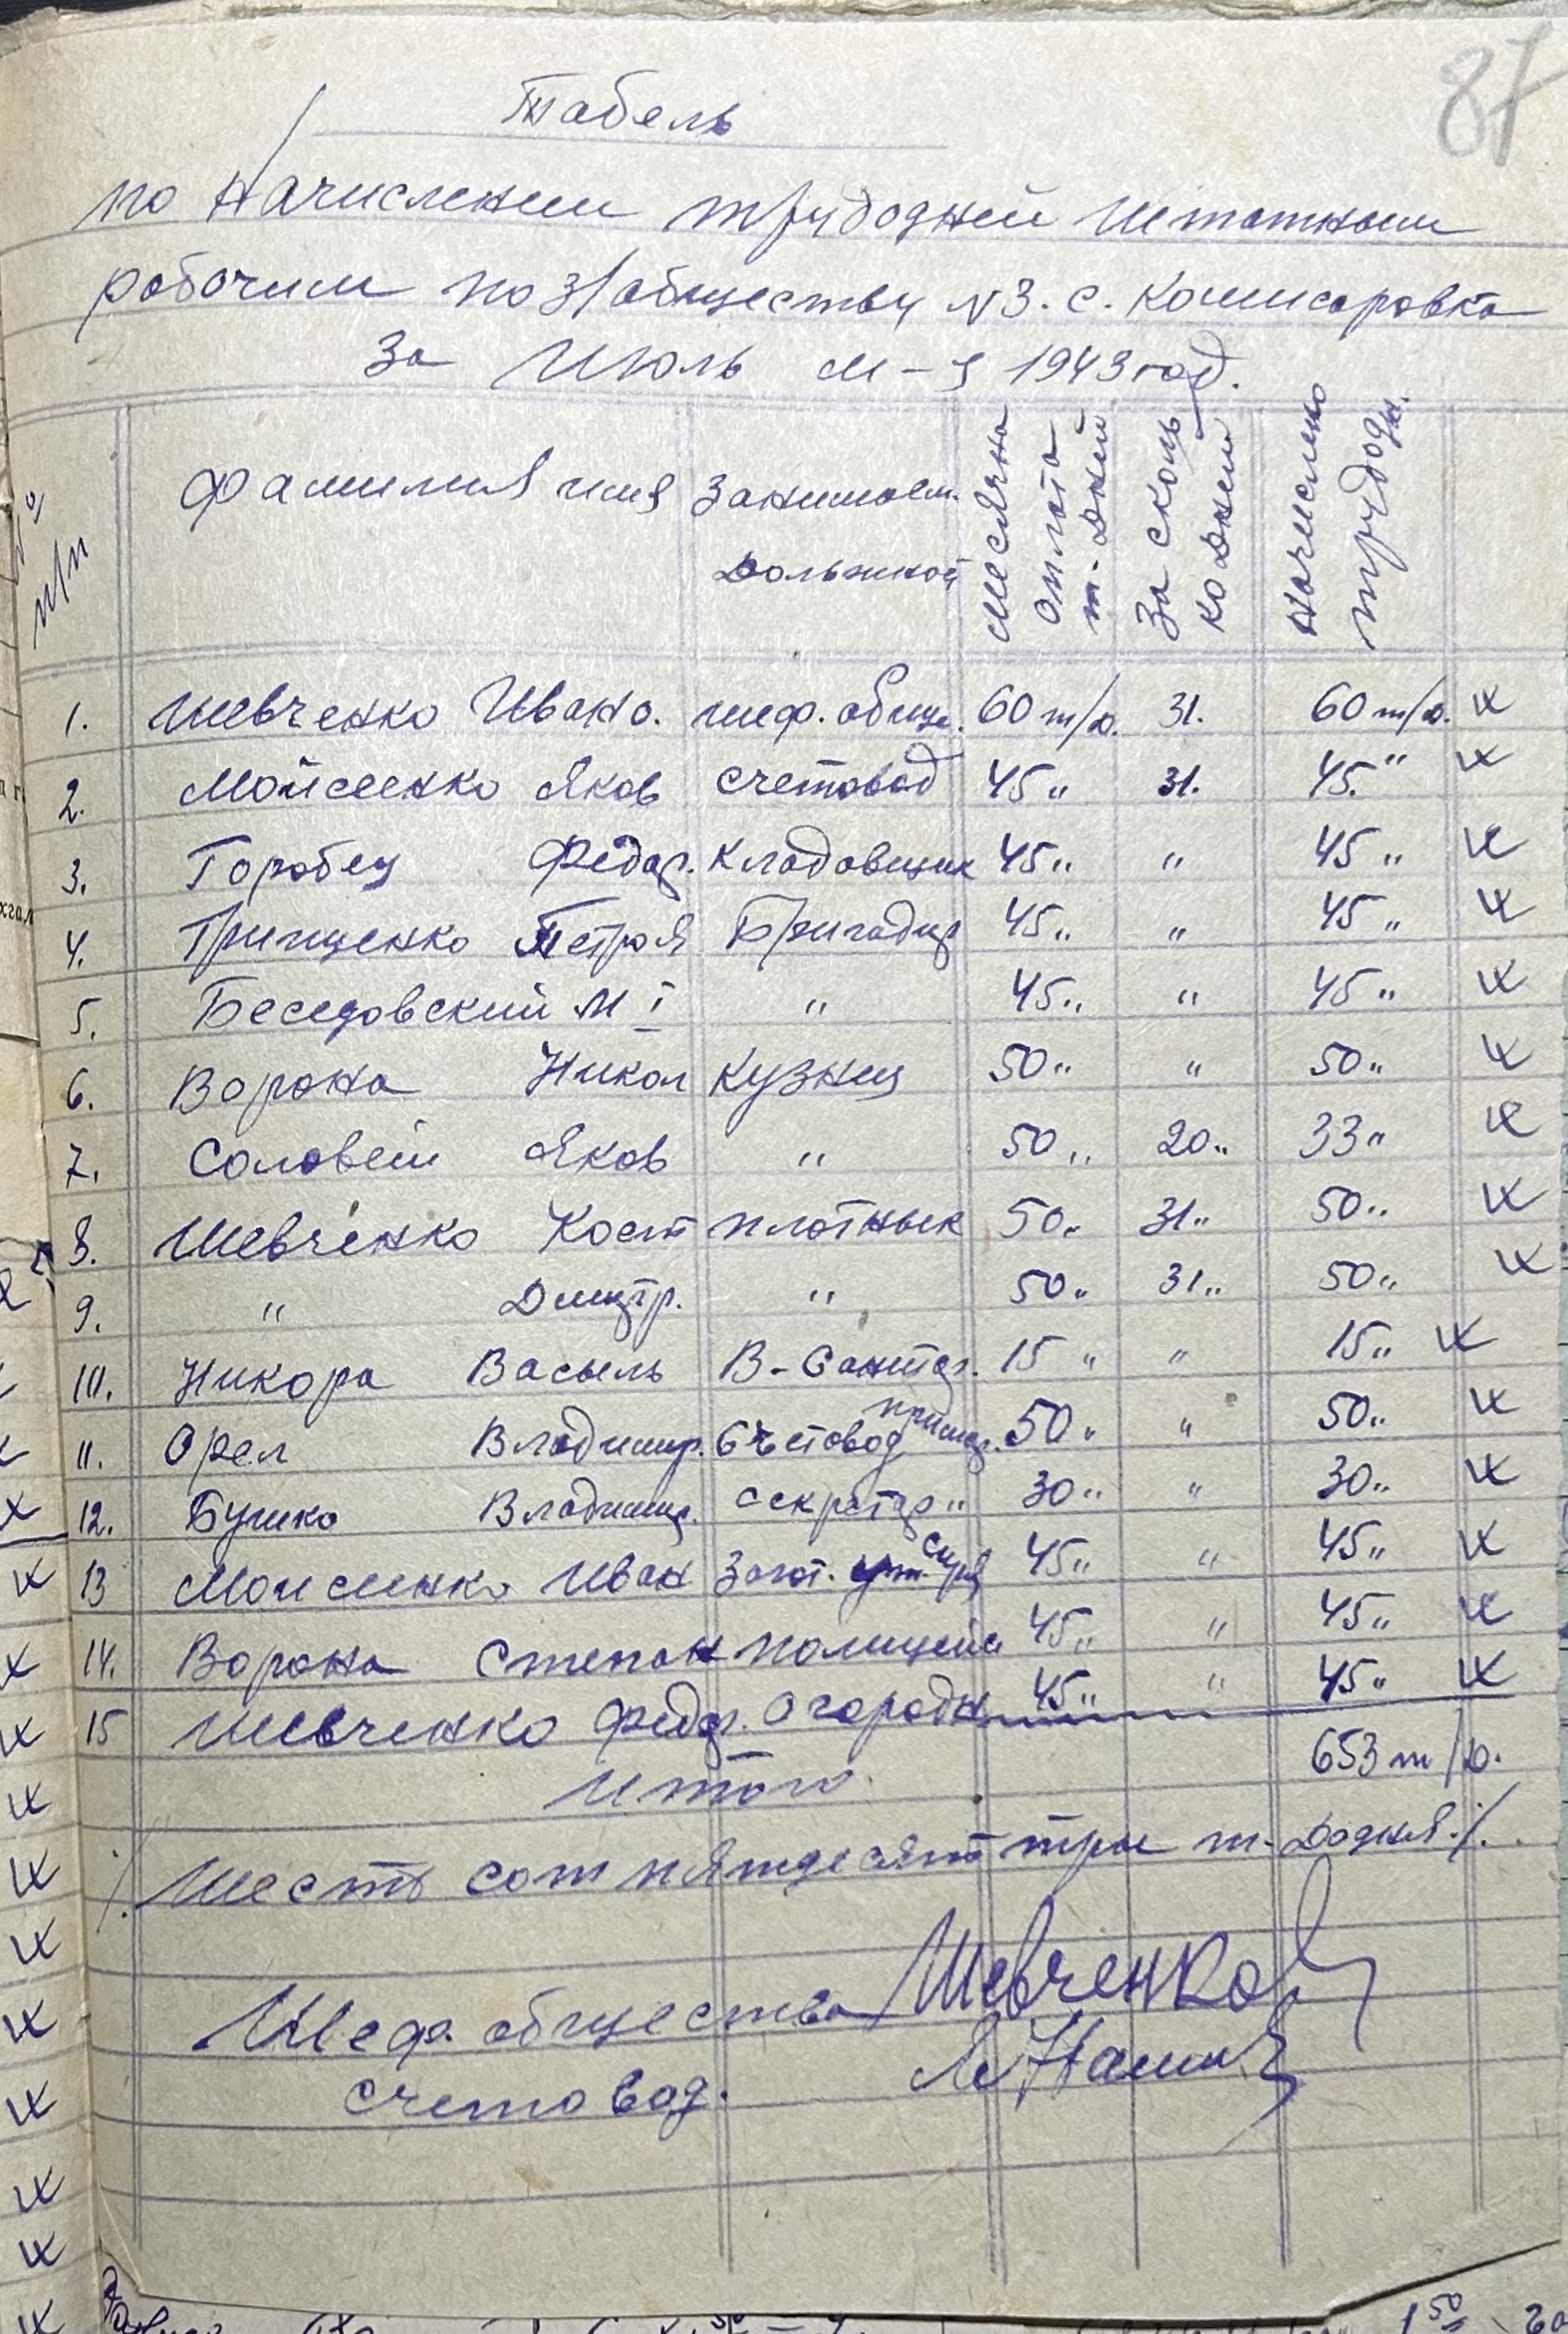 87
Табель
по начислении трудодней штатным
рабочим по з/обществу N3. с. Комисаровка
За Июль м-ц 1943 год.
№ п/п Фамилия имя Занимаем. должной Месячна оплата т-дней За сколь ко дней Начислено трудодн.
1. Шевченко Ивано. шеф. обще. 60 т/д. 31. 60 т/д.
2. Мойсеенко Яков счетовод 45 " 31. 45. "
3. Горобец Федор. Кладовщик 45 " " 45 "
4. Грищенко Петро Я Бригадир 45 " " 45 "
5. Беседовский М І " 45 " " 45 "
6. Ворона Никол Кузнец 50 " " 50 "
7. Соловей Яков " 50 " 20 " 33 "
8. Шевченко Кост плотнык 50 " 31 " 50 "
9. " Дмитр. " 50 " 31 " 50 "
10. Никора Васыль В-Санитар. 15 " " 15 "
11. Орел Владимир. Счетовод примар. 50 " " 50 "
12. Бушко Владимир. секретар " 30 " " 30 "
13 Моисеенко Иван Загот. 45 " " 45 "
14. Ворона Степан полицейс 45 " " 45 "
15 Шевченко Федор. Огородн 45 " " 45 "
Итого 653 т/д.
/. Шесть сот пятдесят три т-додня ./.
Шеф. общества Шевченко
счетовод.